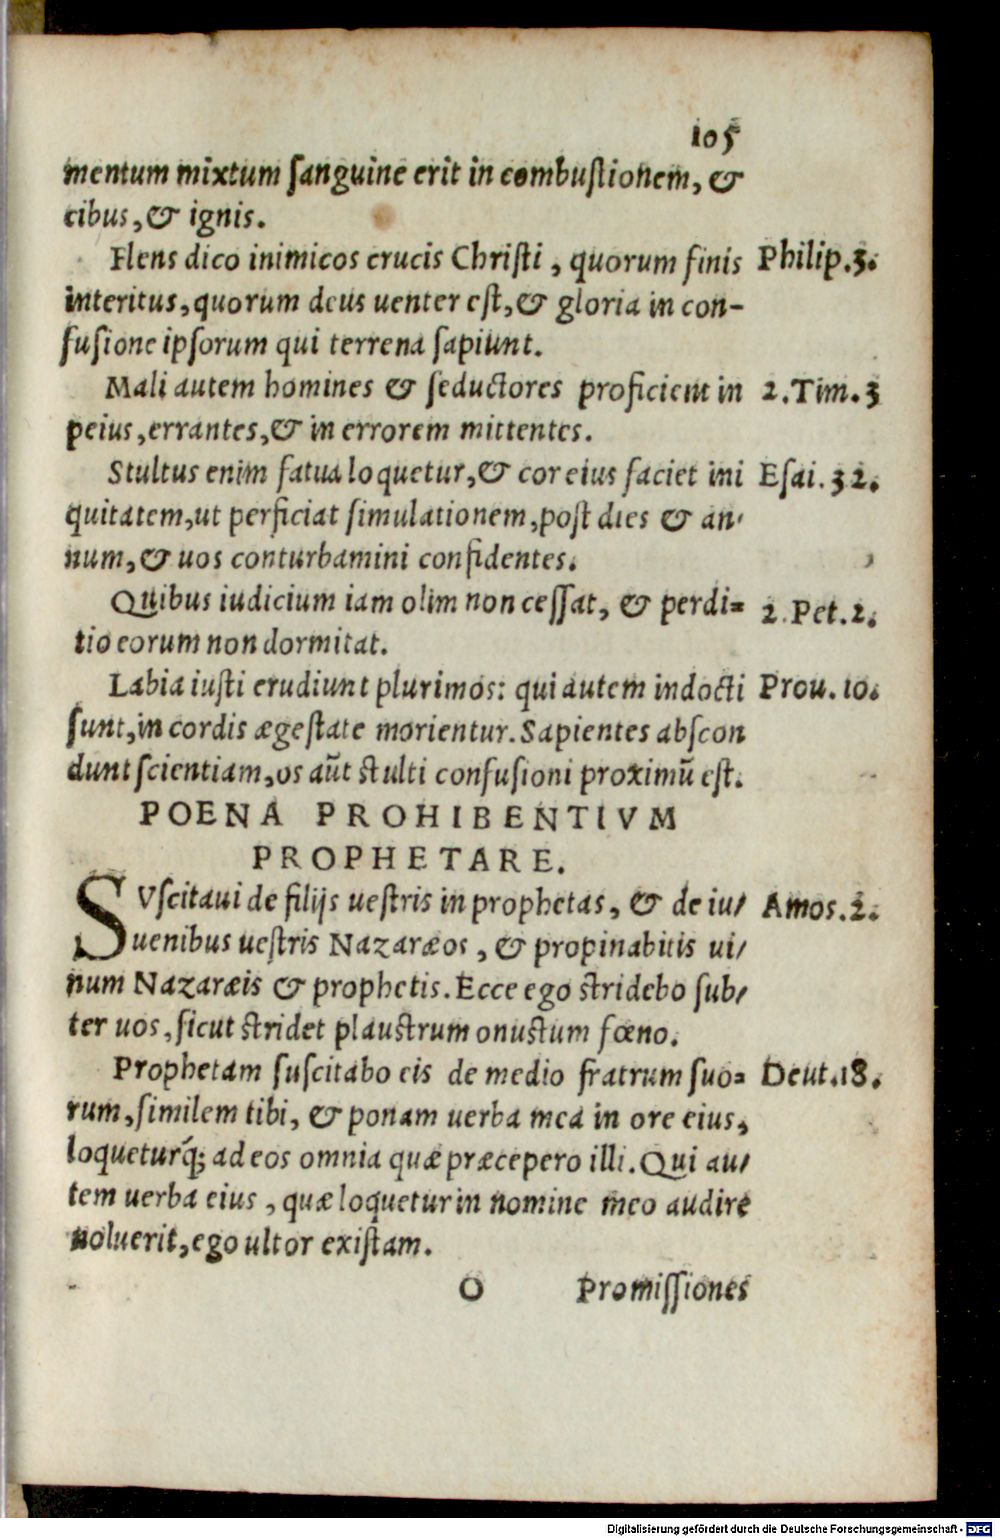 105
mentum mixtum sanguine erit in combustionem, &
cibus, & ignis.
Flens dico inimicos crucis Christi, quorum finis Philip.3.
interitus, quorum deus uenter est, & gloria in con-
fusione ipsorum qui terrena sapiunt.
Mali autem homines & seductores proficient in 2.Tim.3
peius, errantes, & in errorem mittentes.
Stultus enim fatua loquetur, & cor eius faciet ini Esai.32.
quitatem, ut perficiat simulationem, post dies & an-
num, & uos conturbamini confidentes.
Quibus iudicium iam olim non cessat, & perdi= 2.Pet.2.
tio eorum non dormitat.
Labia iusti erudiunt plurimos: qui autem indocti Prou.10.
sunt, in cordis ægestate morientur. Sapientes abscon
dunt scientiam, os aũt stulti confusioni proximũ est.
POENA PROHIBENTIVM
PROPHETARE.
SVscitaui de filijs uestris in prophetas, & de iu/ Amos.2.
uenibus uestris Nazaræos, & propinabitis ui/
num Nazaræis & prophetis. Ecce ego stridebo sub/
ter uos, sicut stridet plaustrum onustum fœno.
Prophetam suscitabo eis de medio fratrum suo= Deut.18.
rum, similem tibi, & ponam uerba mea in ore eius,
loqueturq́; ad eos omnia quæ præcepero illi. Qui au/
tem uerba eius, quæ loquetur in nomine meo audire
noluerit, ego ultor existam.
O Promissiones
Digitalisierung gefördert durch die Deutsche Forschungsgemeinschaft - DFG